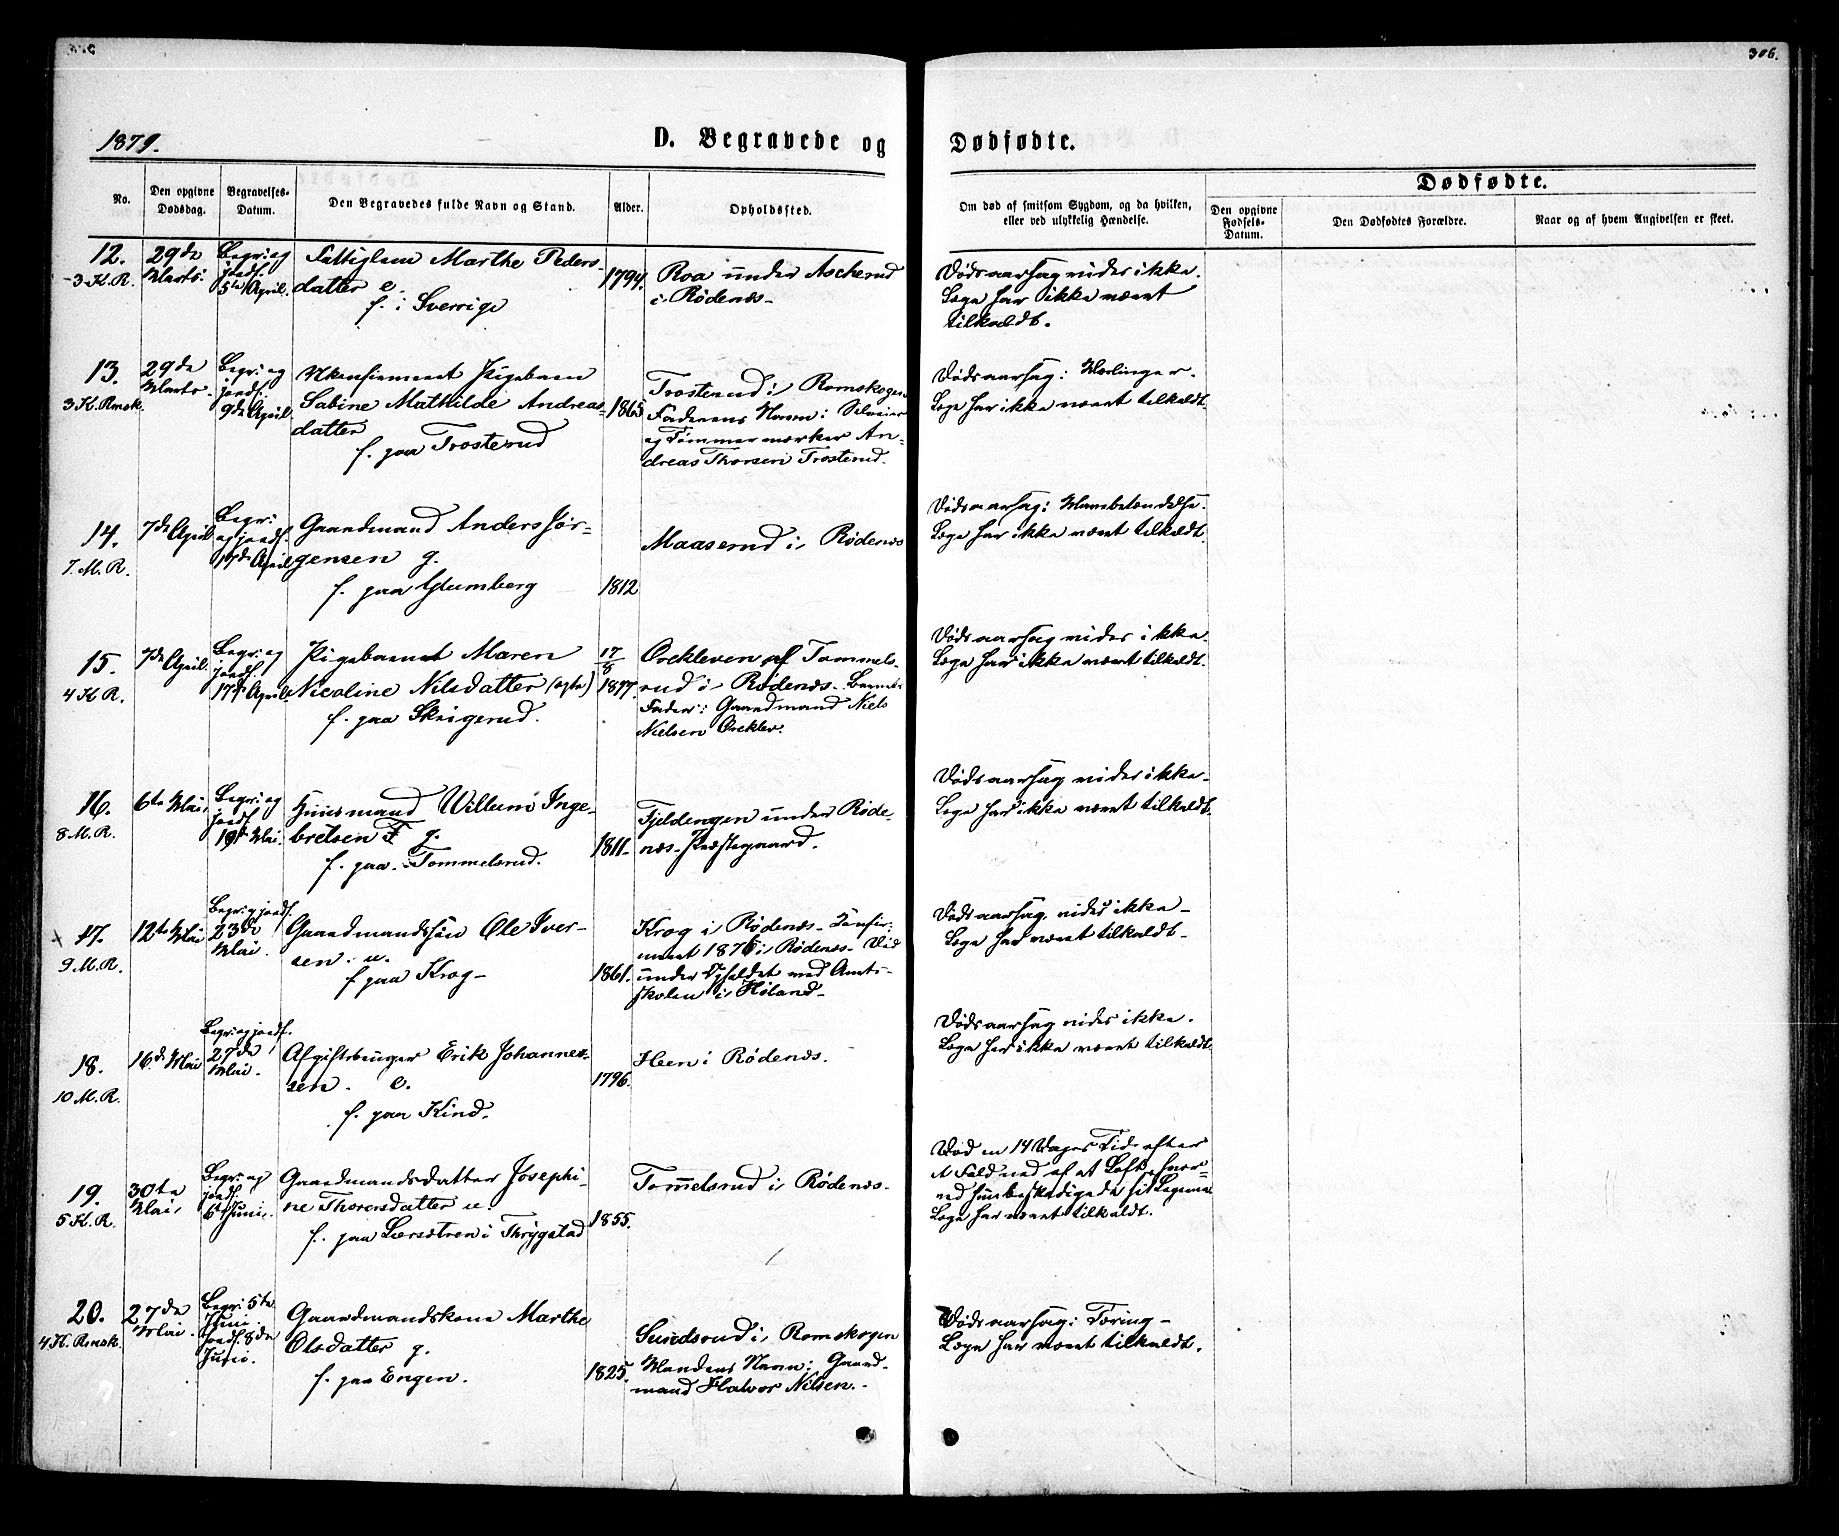 306.
1879.
D. Begravede og
Dødfødte.
No.
Den opgivne
Dødsdag.
Begravelses-
Datum.
Den Begravedes fulde Navn og Stand.
Alder.
Opholdssted.
Om død af smitsom Sygdom, og da hvilken,
eller ved ulykkelig Hændelse.
Dødfødte.
Den opgivne
Fødsels-
Datum.
Den Dødfødtes Forældre.
Naar og af hvem Angivelsen er skeet.
12.
3. K. R.
29de
Marts.
Begr. og
jordf.
5te April.
Fattiglem Marthe Peders-
datter e.
f. i Sverrige
1794.
Roa under Ascherud
i Rødenæs-
Dødsaarsag vides ikke.
Læge har ikke været
tilkaldt.
13.
3 K. Rmsk.
29de
Marts.
Begr. og
jordf.
9de April
Ukonfirmeret Pigebarn
Sabine Mathilde Andreas-
datter
f. paa Trosterud
1865
Trosterud i Romskogen
Faderens Navn: Selveier
og Tømmermærker An-
dreas Thorsen Trosterud.
Dødsaarsag: Mæslinger.
Læge har ikke været tilkaldt.
14.
7. M. R.
7de April
Begr.
og jordf.
17de April
Gaardmand Anders Jør-
gensen g.
f. paa Glumberg
1812
Maaserud i Rødenæs
Dødsaarsag:
Læge har ikke været tilkaldt.
15.
4 K R.
7de April.
Begr. og
jordf.
17de April
Pigebarnet Maren
Nicoline Nilsdatter (ægte)
f. paa Skrigerud.
17/8
1877.
Orekleven af Tommels-
rud i Rødenæs. Barnets
Fader: Gaardmand Niels
Nielsen Oreklev.
Dødsaarsag vides ikke.
Læge har ikke været tilkaldt.
16.
8 M. R.
6te Mai.
Begr. og
jordf.
19de Mai.
Huusmand Willum Inge-
bretsen F g.
f. paa Tommelsrud.
1811.
Fjeldengen under Røde-
næs Præstegaard.
Dødsaarsag vides ikke.
Læge har ikke været tilkaldt.
17.
9 M. R.
12te Mai
Begr. og jordf.
23de
Mai.
Gaardmandssøn Ole Iver-
sen. u.
f paa Krog-
1861.
Krog i Rødenæs- Konfir-
meret 1876 i Rødenæs- Død
under Opholdet ved Amts-
skolen i Høland-
Dødsaarsag vides ikke-
Læge har været tilkaldt-
18.
10 M. R.
16de Mai
Begr. og jordf.
27de
Mai.
Afgiftsbruger Erik Johannes-
sen. e.
f. paa Kind.
1796.
Heen i Rødenæs.
Dødsaarsag vides ikke.
Læge har ikke været tilkaldt.
19.
5 K. R.
30te
Mai
Begr. og
jordf.
6te Juni.
Gaardmandsdatter Josephi-
ne Thoresdatter u.
f. paa Lersætren i Thrygstad
1855.
Tommelsrud i Rødenæs-
Død en 14 Dages Tid efter
et Fald ned af et Loft, hvor-
ved hun beskadigede sit Legeme
Læge har været tilkaldt.
20.
4 K. Rmsk.
27de
Mai.
Begr. 5te
Juni
jordf. 8de
Juni.
Gaardmandskone Marthe
Olsdatter g.
f. paa Engen.
1825.
Sundsrud i Romskogen
Mandens Navn: Gaard-
mand Halvor Nilsen.
Dødsaarsag: Tæring-
Læge har været tilkaldt.